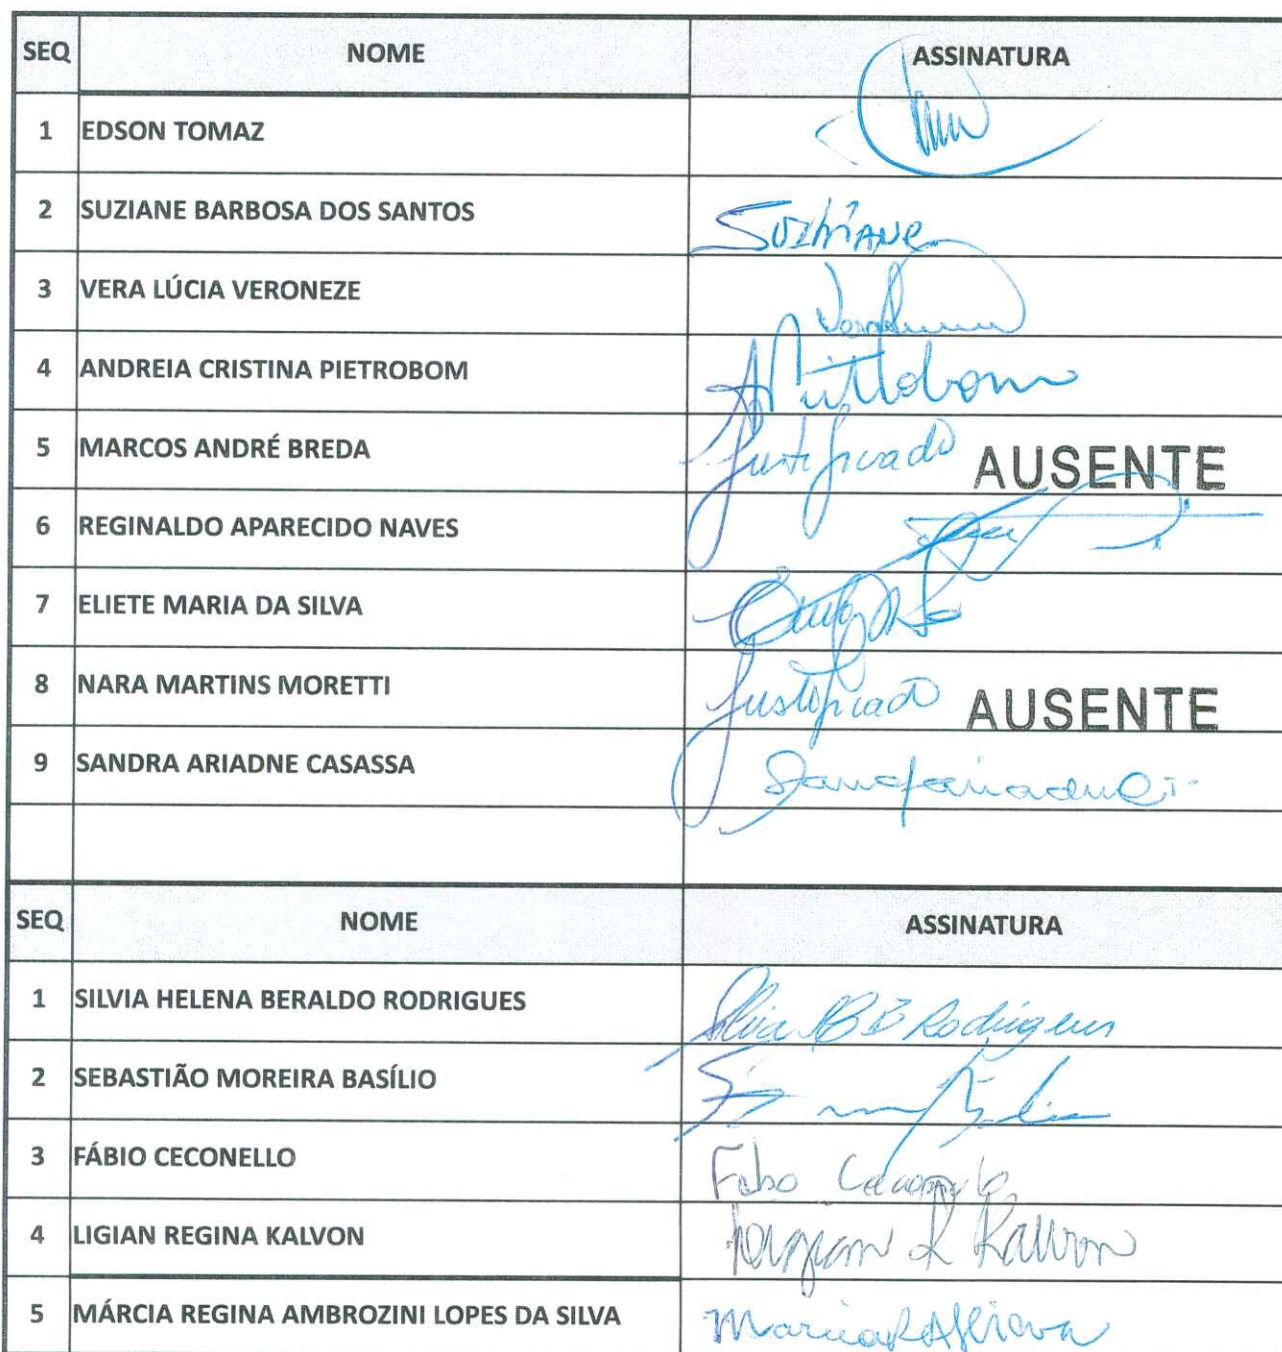 SEQ NOME ASSINATURA
1 EDSON TOMAZ
2 SUZIANE BARBOSA DOS SANTOS Suziane
3 VERA LÚCIA VERONEZE
4 ANDREIA CRISTINA PIETROBOM APietrobom
5 MARCOS ANDRÉ BREDA Justificado AUSENTE
6 REGINALDO APARECIDO NAVES
7 ELIETE MARIA DA SILVA
8 NARA MARTINS MORETTI Justificado AUSENTE
9 SANDRA ARIADNE CASASSA
SEQ NOME ASSINATURA
1 SILVIA HELENA BERALDO RODRIGUES Silvia HB Rodrigues
2 SEBASTIÃO MOREIRA BASÍLIO
3 FÁBIO CECONELLO Fabio Ceconello
4 LIGIAN REGINA KALVON Ligian R Kalvon
5 MÁRCIA REGINA AMBROZINI LOPES DA SILVA